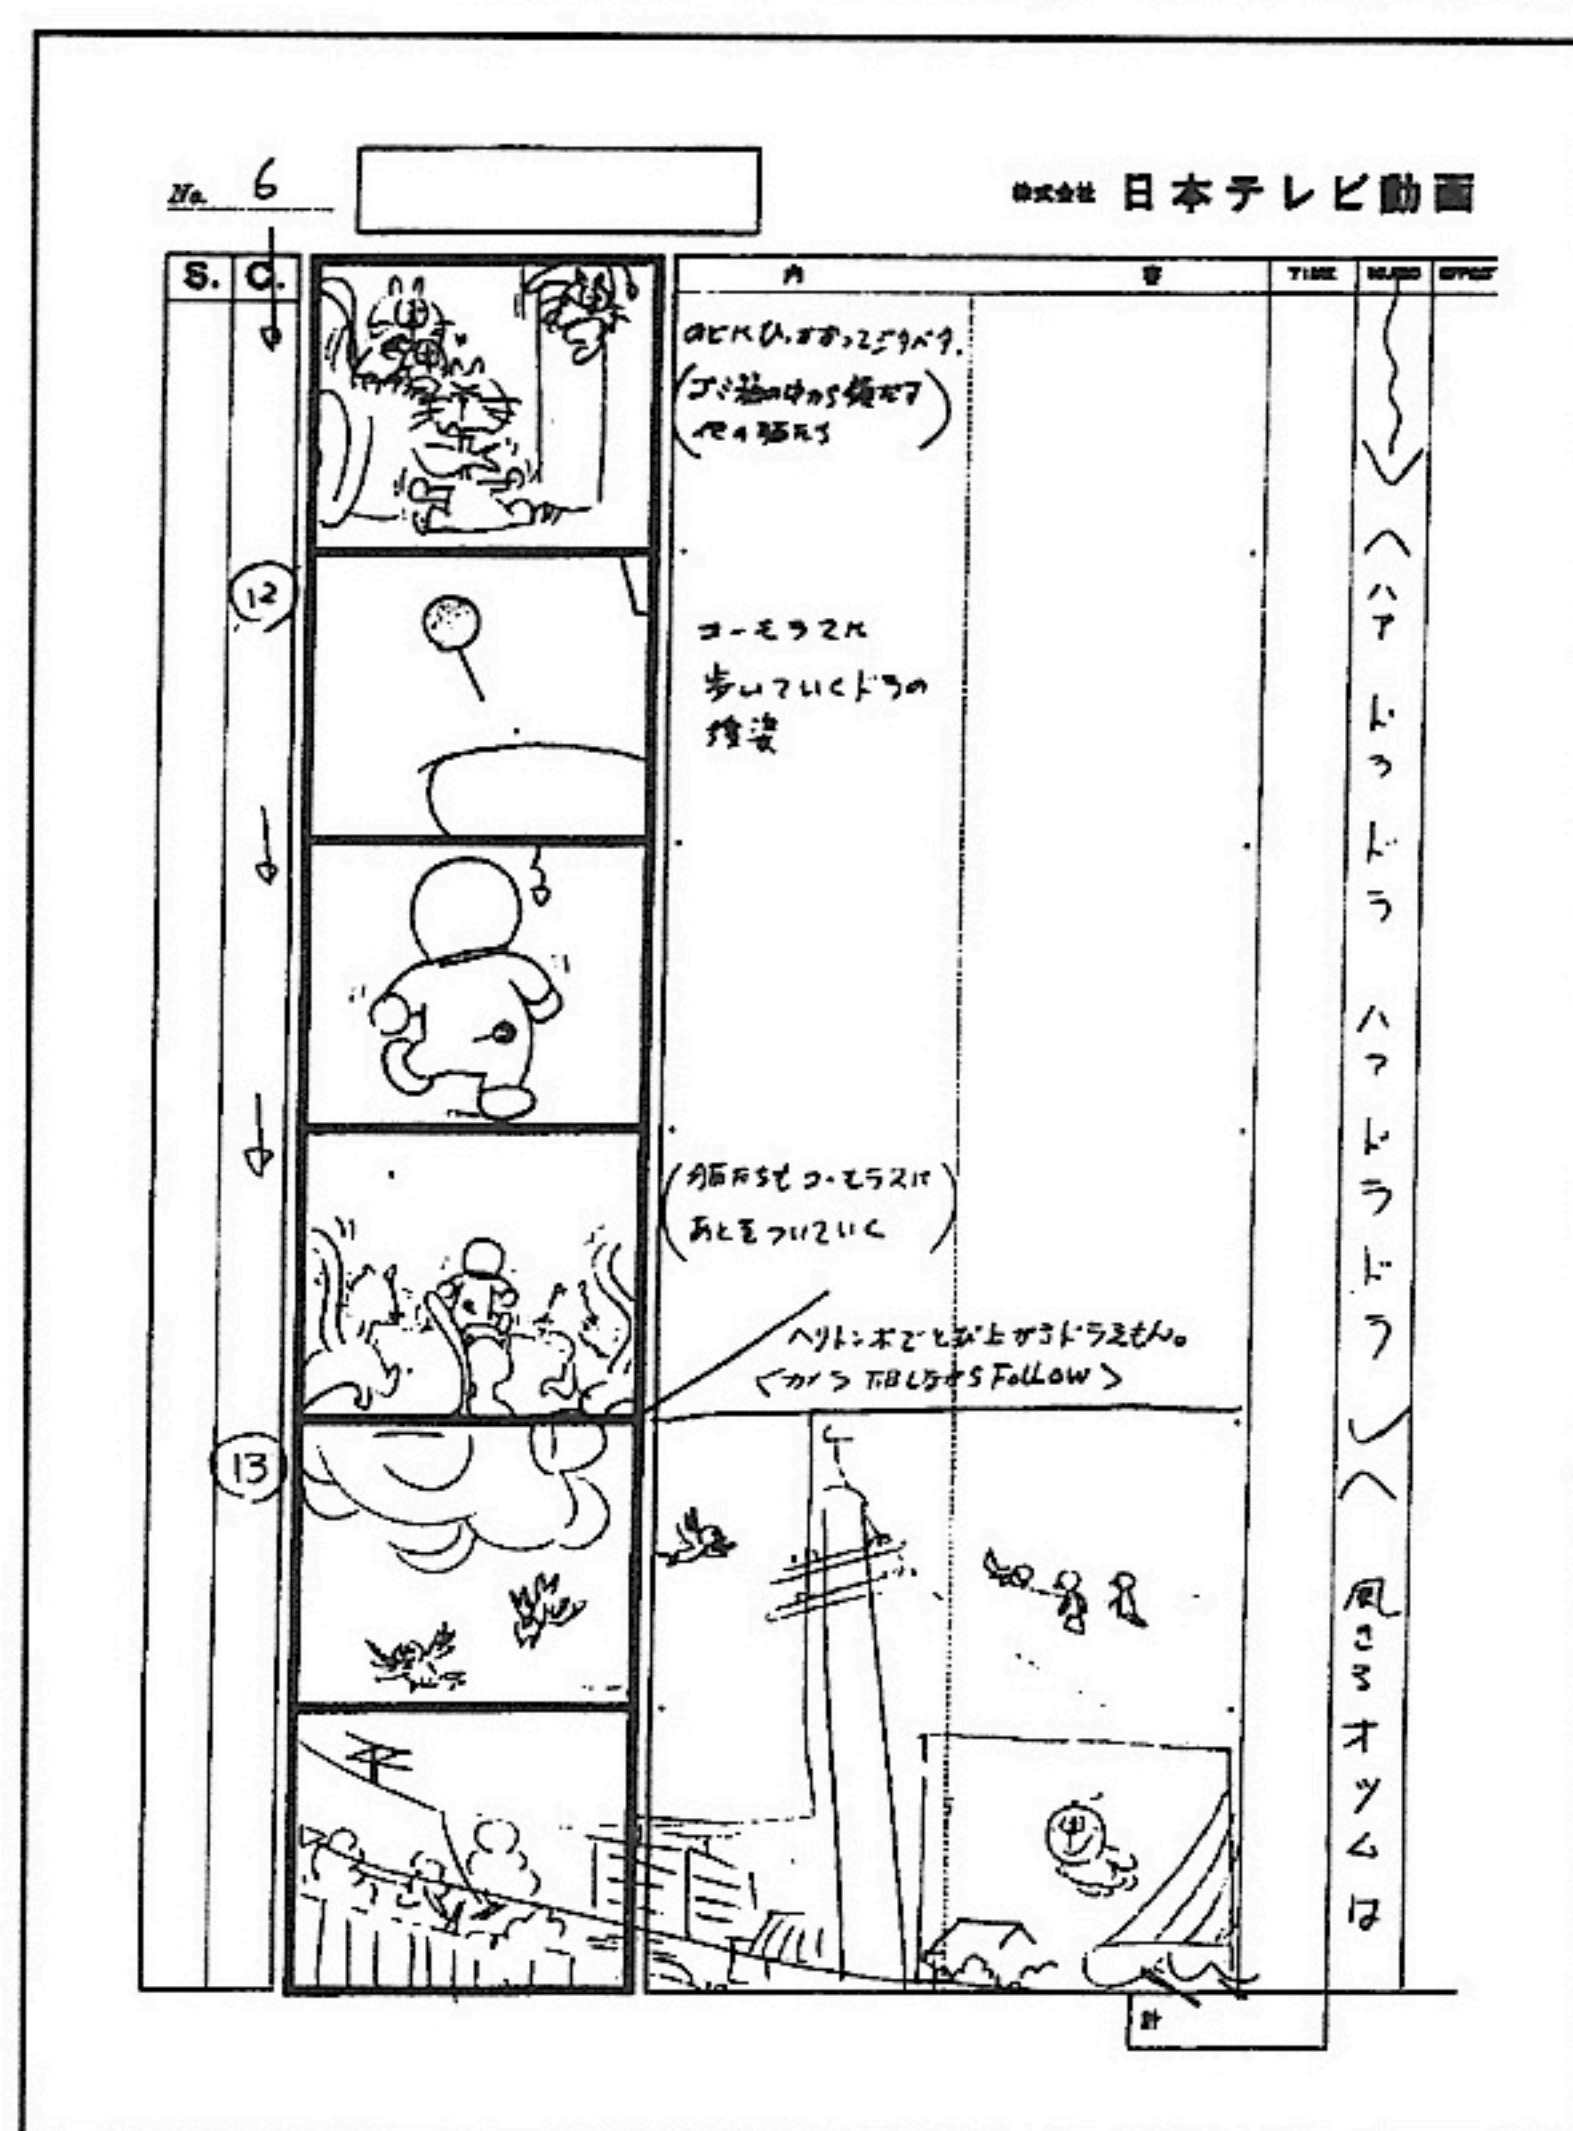 No. 6
株式会社 日本テレビ動画
S. C. 内 容 TIME
のどにひっかかってジタバタ.
(ゴミ箱の中から顔だす
他の猫たち)
12
コーモラスに
歩いていくドラの
後姿
(猫たちもコーモラスに
あとをついていく)
ヘリトンボでとび上がるドラえもん。
<カメラ 下降しながら Follow>
13
ハア ドラ ドラ ハア ドラ ドラ
風きるオツムは
計